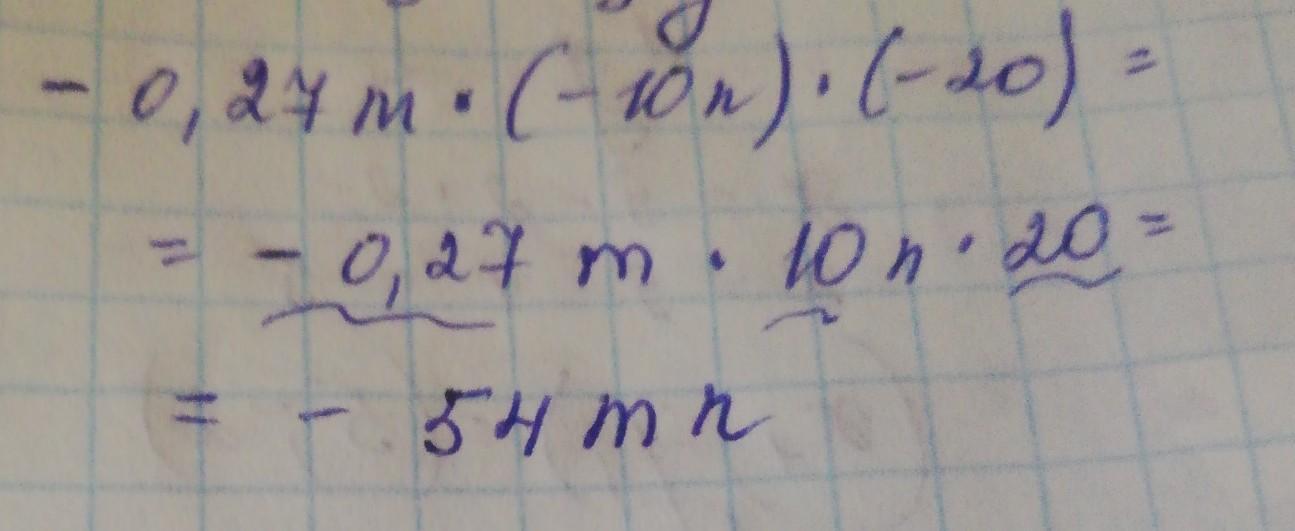 - 0,27 m · (-10 n) · (-20) =
= - 0,27 m · 10 n · 20 =
= - 54 m n